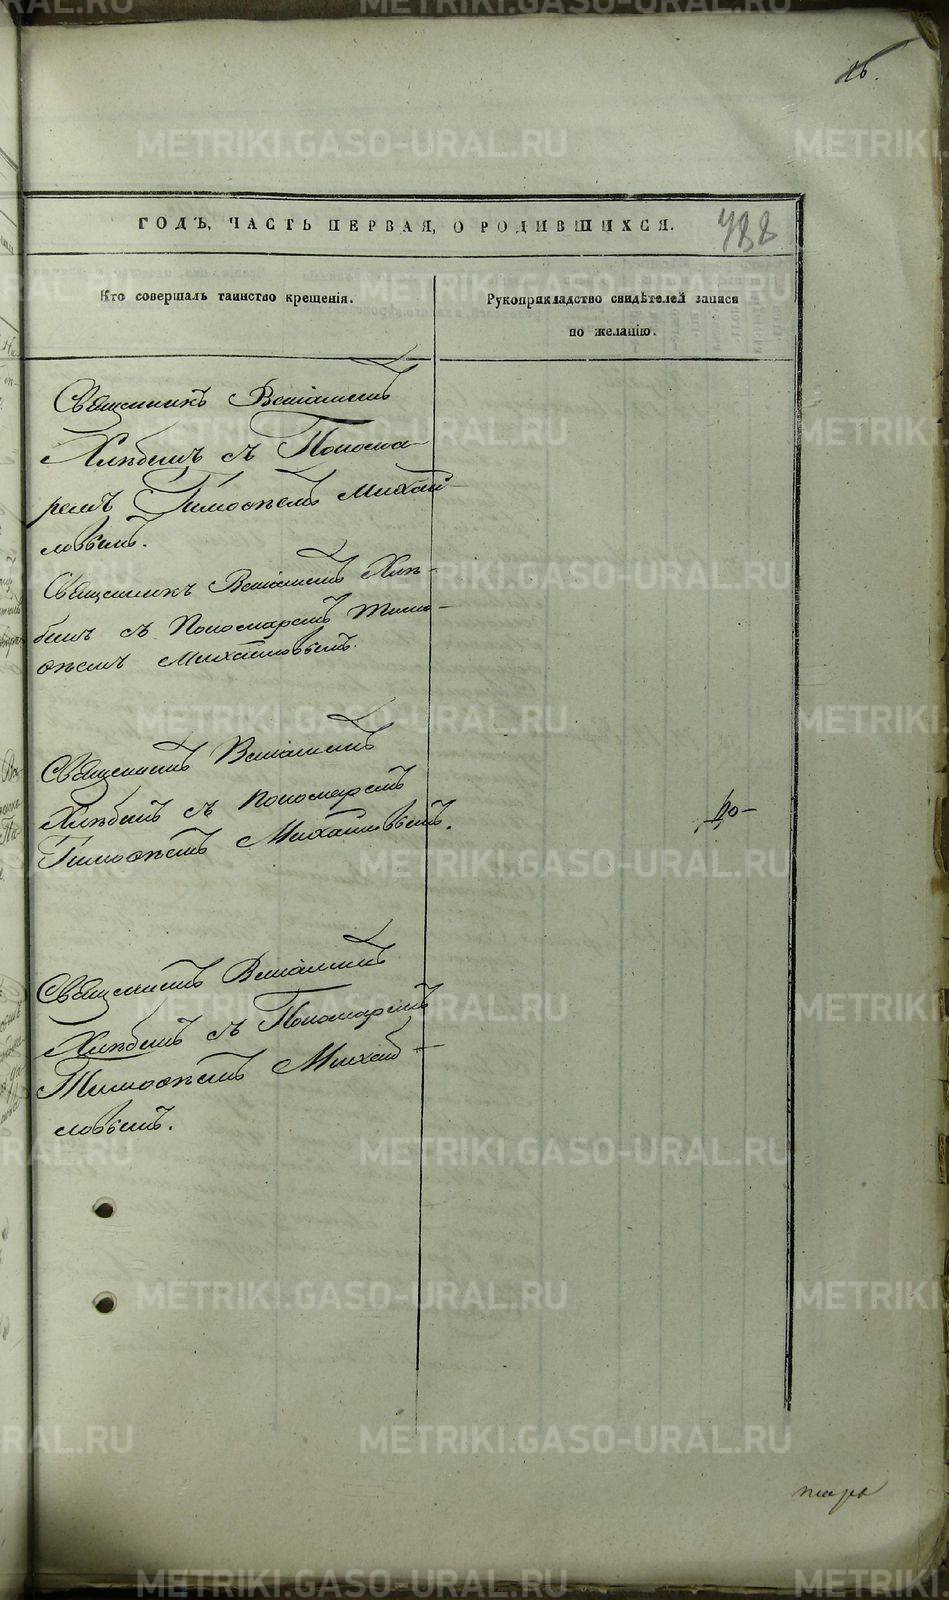 16.
ГОДЪ, ЧАСТЬ ПЕРВАЯ, О РОДИВШИХСЯ.
788
Кто совершалъ таинство крещенія.
Рукоприкладство свидѣтелей записи
по желанію.
Священникъ Веніаминъ
Хлѣбинъ съ Понома-
ремъ Тимоѳеемъ Михай-
ловымъ.
Священникъ Веніаминъ Хлѣ-
бинъ съ Пономаремъ Тимо-
ѳеемъ Михайловымъ.
Священникъ Веніаминъ
Хлѣбинъ съ Пономаремъ
Тимоѳеемъ Михайловымъ.
Священникъ Веніаминъ
Хлѣбинъ съ Пономаремъ
Тимоѳеемъ Михай-
ловымъ.
METRIKI.GASO-URAL.RU